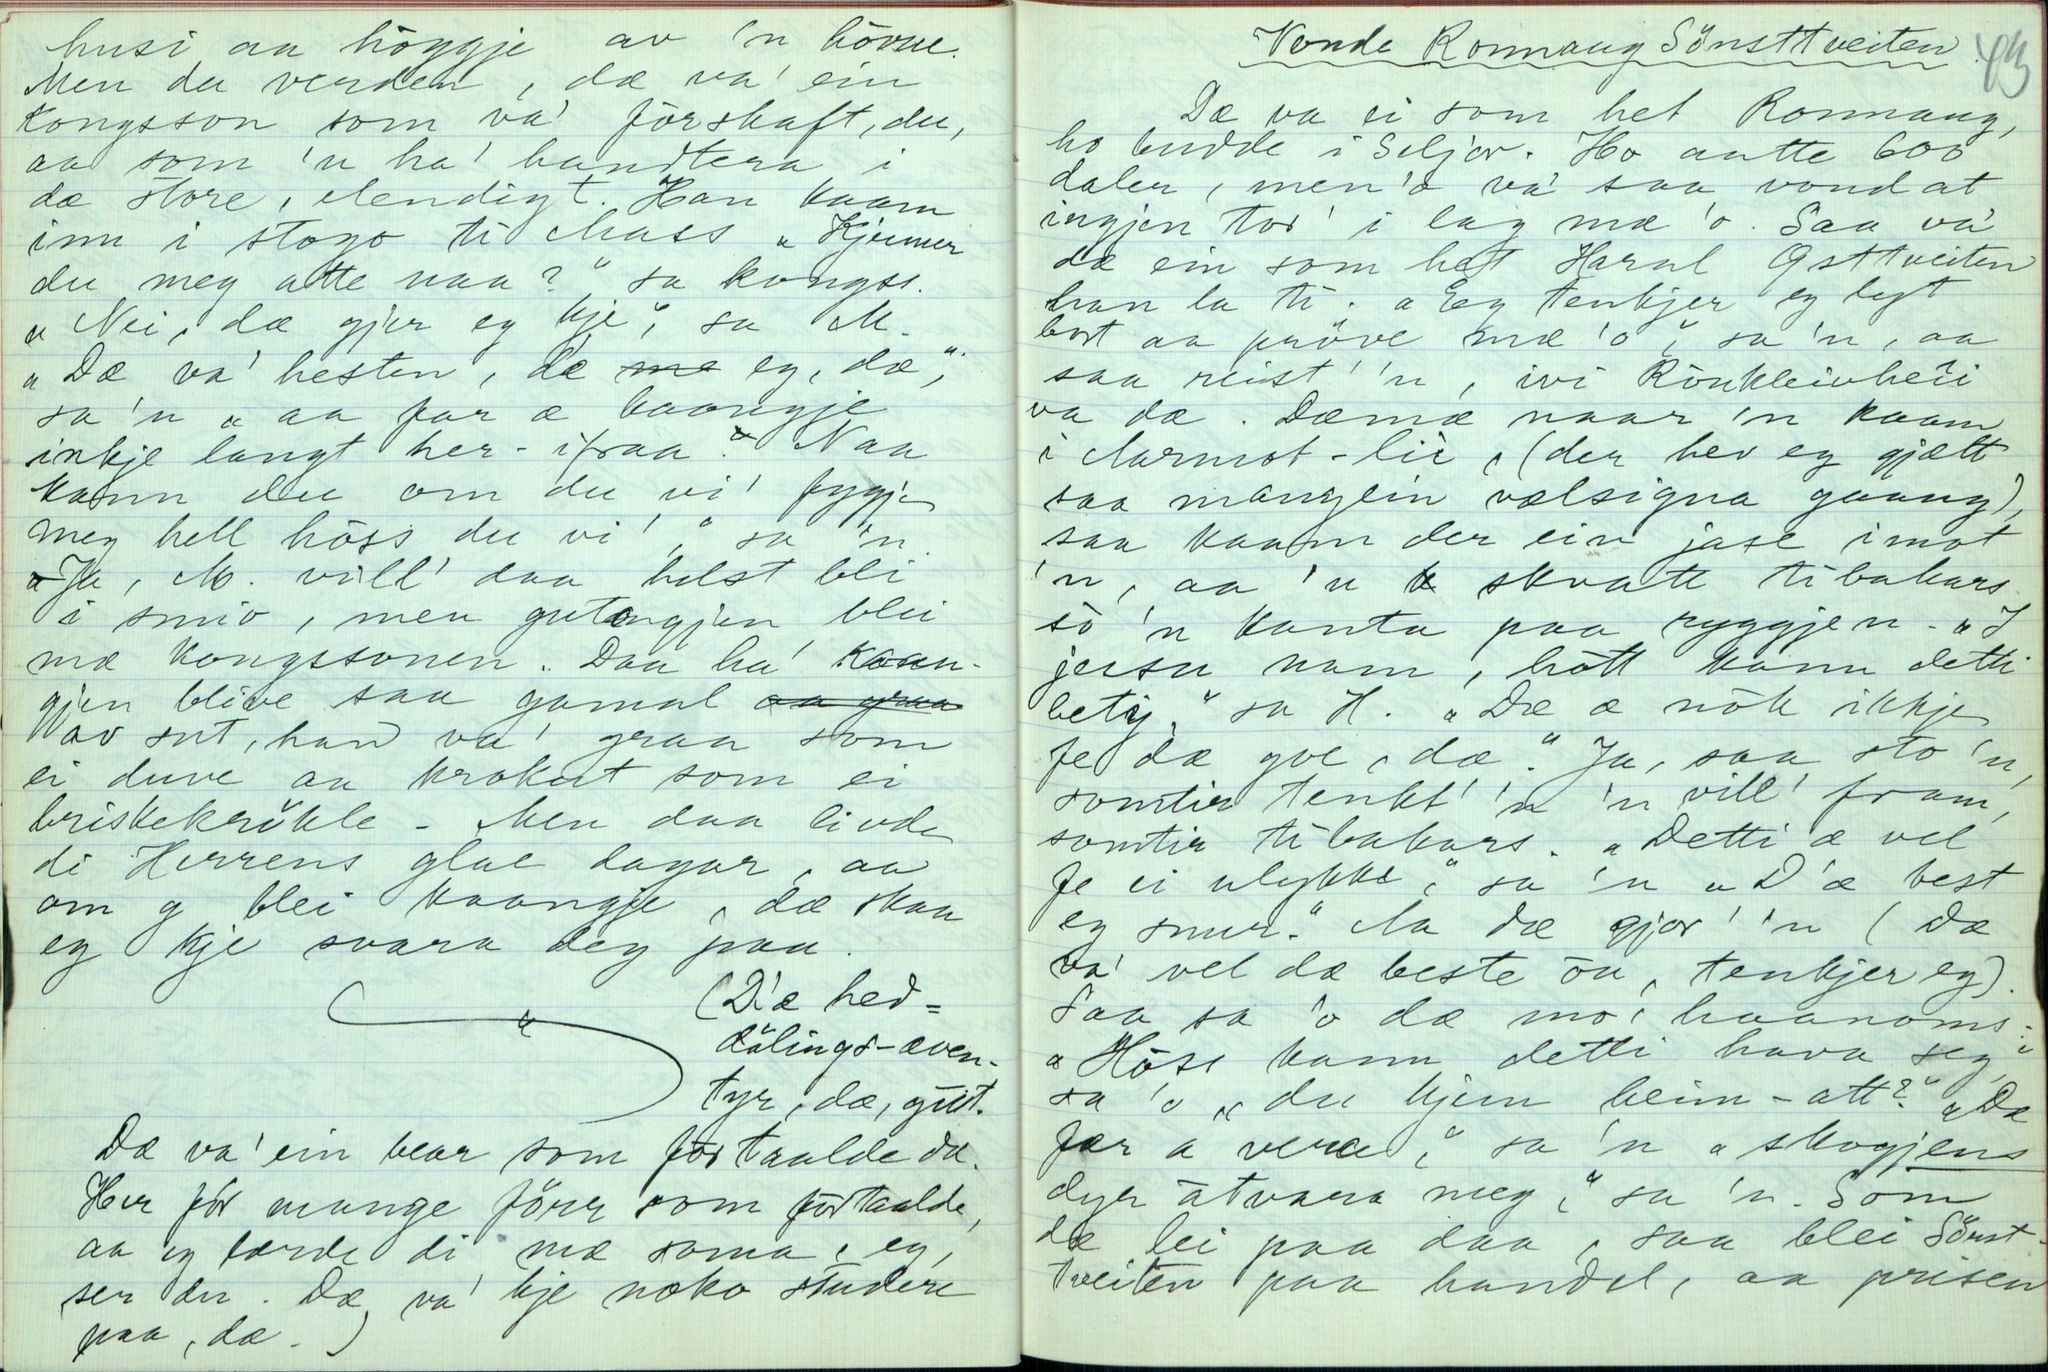 husi aa höggje av 'n hövue.
Men du verden, dæ va' ein
kongsson som va' förskaft, du,
aa som 'n ha' handtera i
dæ store, elendigt. Han kaam
inn i stogo ti Mass „Kjenner
du meg atte naa?" sa kongss.
„Nei, dæ gjer eg kje", sa M.
„Dæ va' hesten, dæ me eg, dæ",
sa 'n „aa far æ kaangje
inkje langt her-ifraa." Naa
kann du om du vi' fygje
meg hell höss du vi'," sa 'n.
„Ja, M. vill' daa helst bli
i smio, men gutongjen blei
mæ kongssonen. Daa ha' kaan-
gjen blive saa gamal aa graa
av sut, han va' graa som
ei duve aa krokut som ei
briskekrökle - Men daa livde
di Herrens glae dagar, aa
om g blei kaangje, dæ skaa
eg kje svara deg paa.
(D'æ hed-
dölings-æven-
tyr, dæ, gut.
Dæ va' ein kear som förtaalde dæ.
Her för mange förr som förtaalde,
aa eg lærde di mæ soma, eg,
ser du. Dæ va' kje noko studere
paa, dæ.)
Vonde Ronnaug Sönsttveiten
43
Dæ va ei som het Ronnaug,
ho budde i Seljor. Ho aatte 600
daler, men 'o va' saa vond at
ingjen tor' i lag mæ 'o. Saa va'
dæ ein som het Haral Östtveiten
han la ti. „Eg tenkjer eg lyt
bort aa pröve mæ 'o", sa 'n, aa
saa reist' 'n, ivi Rönkleivheii
va dæ. Dæmæ naar 'n kaam
i Marmot-lii, (der hev eg gjætt
saa mangein vælsigna gaang),
saa kaam der ein jase imot
'n, aa 'n k skvatt tibakars
so 'n kanta paa ryggjen - „I
jersu namn, hött kann detti
bety," sa H. „Dæ æ nök ikkje
fe dæ goe, dæ." Ja, saa sto 'n,
somtir tenkt' 'n 'n vill' fram,
somtir tibakars. „Detti æ vel
fe ei ulykke," sa 'n „D'æ best
eg snur." Aa dæ gjor' 'n (Dæ
va' vel dæ beste öu, tenkjer eg).
Saa sa 'o dæ mo' haanoms:
„Höss kann detti hava seg,"
sa 'o, „du kjem heim-att?" „Dæ
fær a vera," sa 'n „skogjens
dyr åtvara meg," sa 'n. Som
dæ lei paa daa, saa blei Sönst-
tveiten paa handel, aa prisen